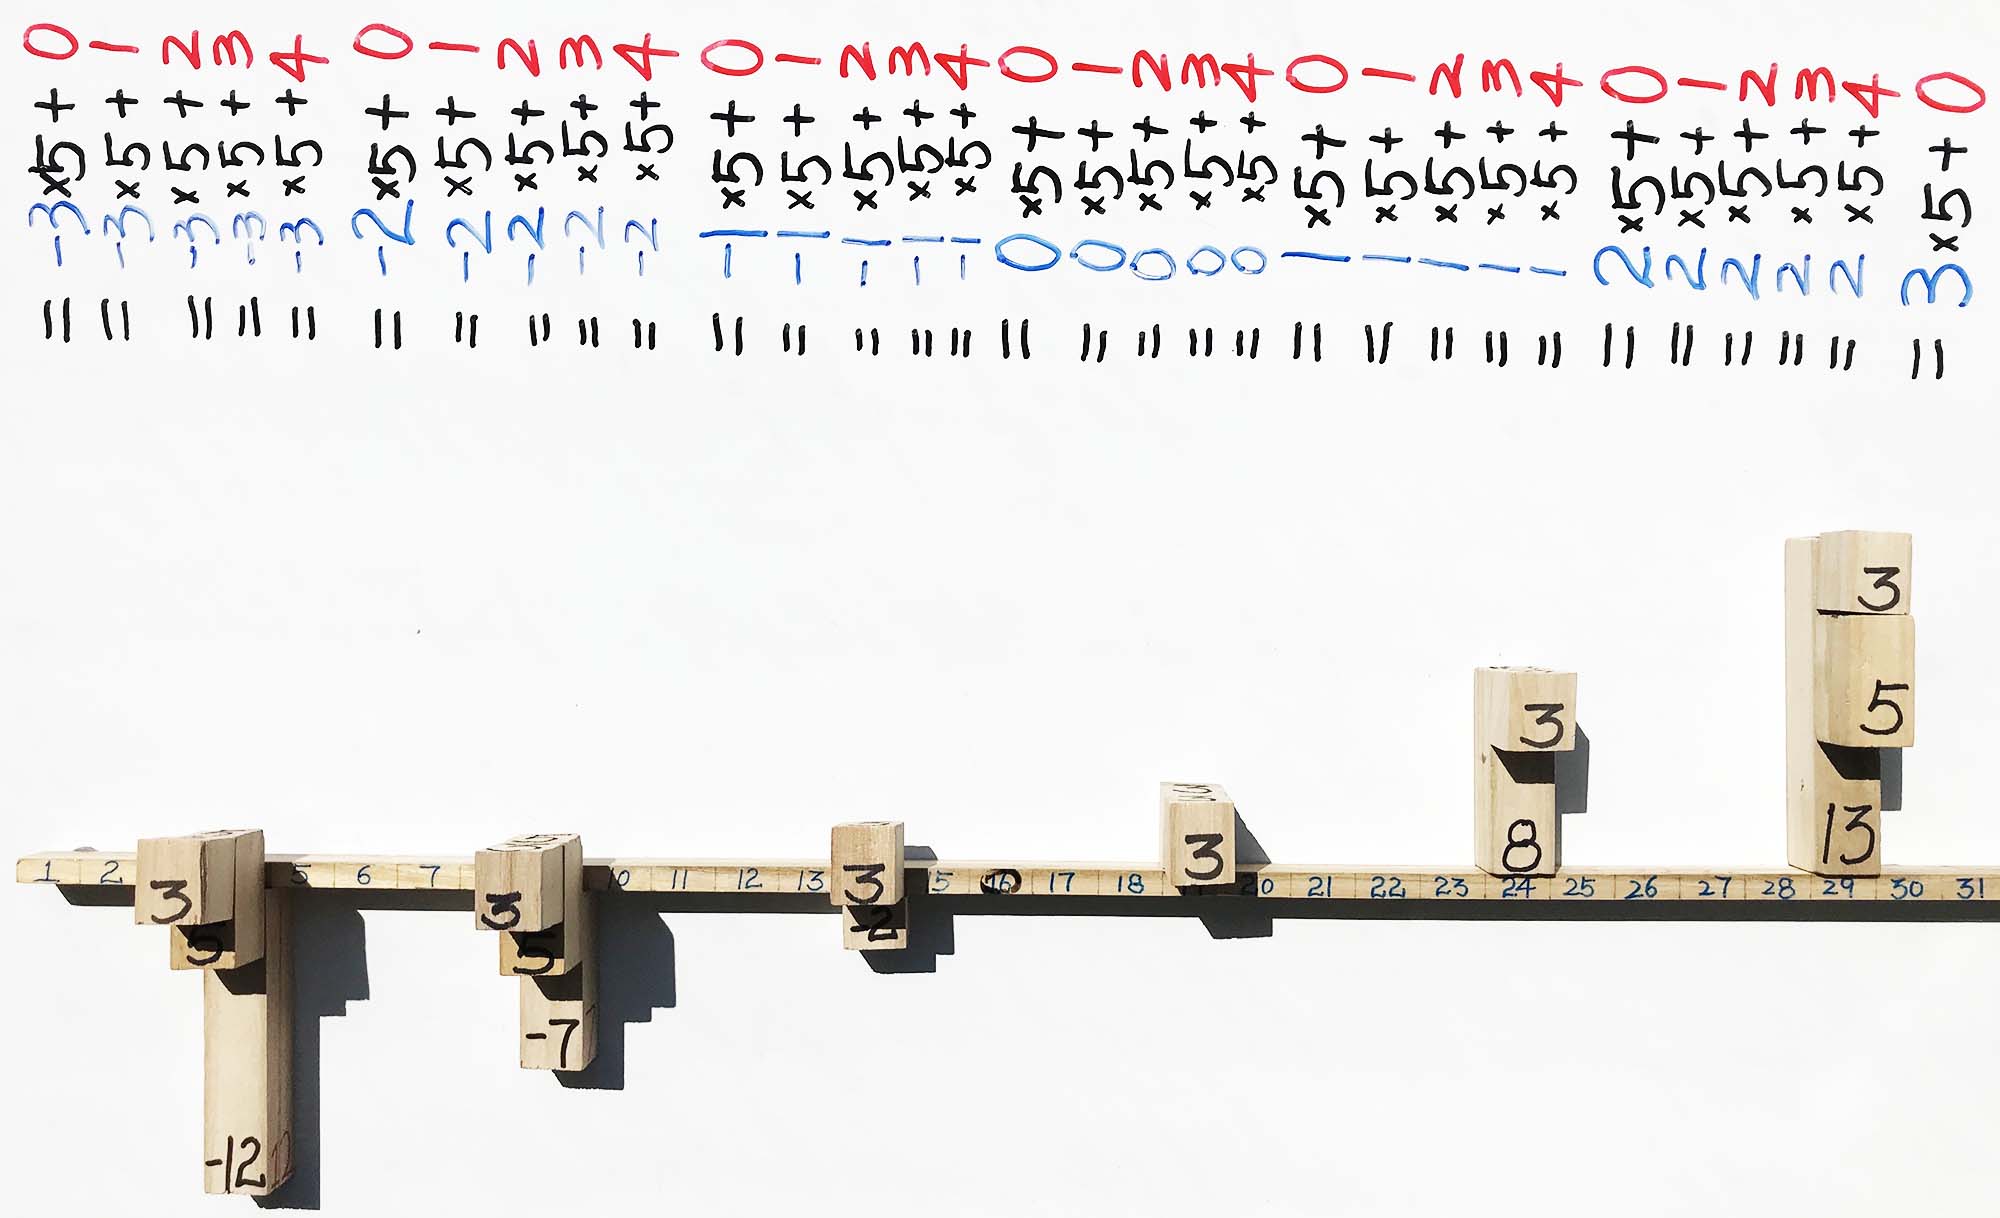 = -3×5+0
= -3×5+1
= -3×5+2
= -3×5+3
= -3×5+4
= -2×5+0
= -2×5+1
= -2×5+2
= -2×5+3
= -2×5+4
= -1×5+0
= -1×5+1
= -1×5+2
= -1×5+3
= -1×5+4
= 0×5+0
= 0×5+1
= 0×5+2
= 0×5+3
= 0×5+4
= 1×5+0
= 1×5+1
= 1×5+2
= 1×5+3
= 1×5+4
= 2×5+0
= 2×5+1
= 2×5+2
= 2×5+3
= 2×5+4
= 3×5+0
3
5
-12
3
5
-7
3
-2
3
3
8
3
5
13
1 2 5 6 7 10 11 12 13 15 16 17 18 20 21 22 23 24 25 26 27 28 29 30 31